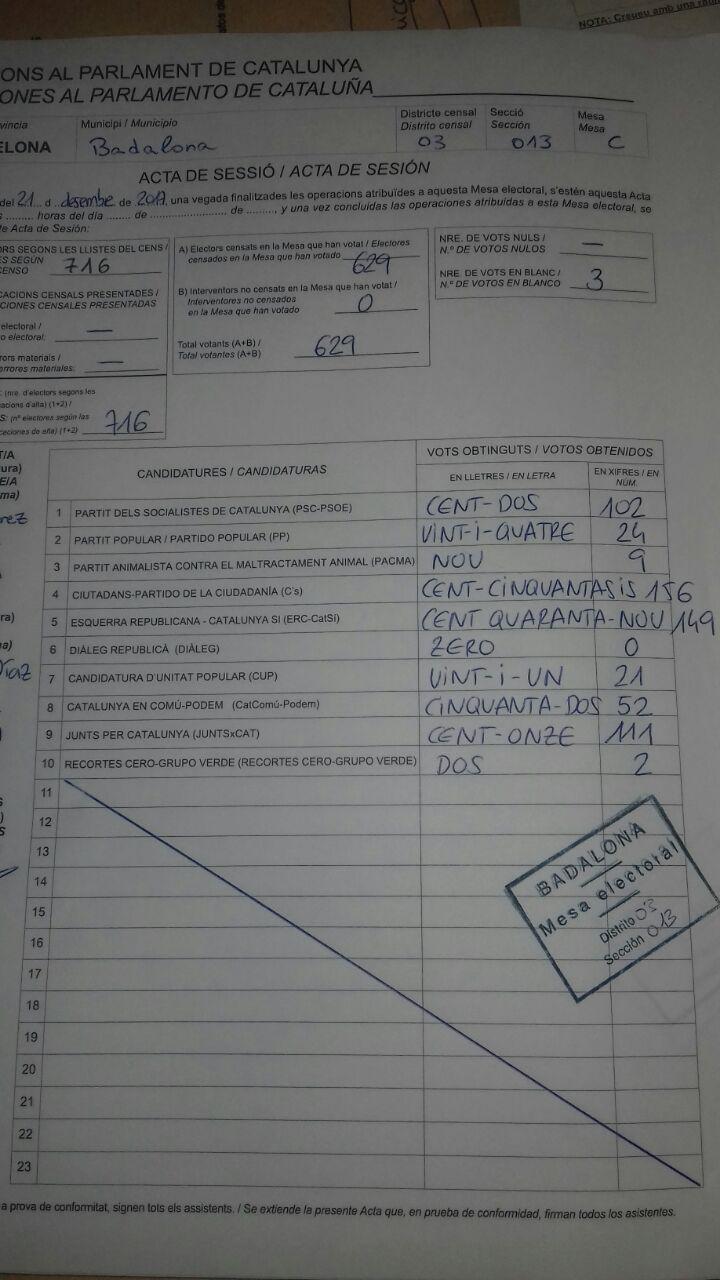 NOTA: Creueu amb una
ONS AL PARLAMENT DE CATALUNYA
ONES AL PARLAMENTO DE CATALUÑA
víncia Municipi / Municipio Districte censal Secció Mesa
Distrito censal Sección Mesa
ELONA Badalona 03 013 C
ACTA DE SESSIÓ / ACTA DE SESIÓN
del 21 d desembre de 2017, una vegada finalitzades les operacions atribuïdes a aquesta Mesa electoral, s'estén aquesta Acta
s ......... horas del día ........ de ........................ de ........., y una vez concluidas las operaciones atribuidas a esta Mesa electoral, se
te Acta de Sesión:
ORS SEGONS LES LLISTES DEL CENS /
ES SEGÚN
CENSO 716
CACIONS CENSALS PRESENTADES /
CIONES CENSALES PRESENTADAS
electoral / —
o electoral:
rors materials / —
errores materiales:
: (nre. d'electors segons les
acions d'alta) (1+2) /
S: (nº electores según las
ceciones de alta) (1+2) 716
A) Electors censats en la Mesa que han votat / Electores
censados en la Mesa que han votado 629
B) Interventors no censats en la Mesa que han votat /
Interventores no censados
en la Mesa que han votado 0
Total votants (A+B) /
Total votantes (A+B) 629
NRE. DE VOTS NULS /
N.º DE VOTOS NULOS —
NRE. DE VOTS EN BLANC /
N.º DE VOTOS EN BLANCO 3
T/A
ura)
E/A
ma)
rez
ra)
na)
Díaz
S
)
S
CANDIDATURES / CANDIDATURAS VOTS OBTINGUTS / VOTOS OBTENIDOS
EN LLETRES / EN LETRA EN XIFRES / EN
NÚM.
1 PARTIT DELS SOCIALISTES DE CATALUNYA (PSC-PSOE) CENT-DOS 102
2 PARTIT POPULAR / PARTIDO POPULAR (PP) VINT-i-QUATRE 24
3 PARTIT ANIMALISTA CONTRA EL MALTRACTAMENT ANIMAL (PACMA) NOU 9
4 CIUTADANS-PARTIDO DE LA CIUDADANÍA (C's) CENT-CINQUANTASIS 156
5 ESQUERRA REPUBLICANA - CATALUNYA SI (ERC-CatSí) CENT QUARANTA-NOU 149
6 DIÀLEG REPUBLICÀ (DIÀLEG) ZERO 0
7 CANDIDATURA D'UNITAT POPULAR (CUP) VINT-i-UN 21
8 CATALUNYA EN COMÚ-PODEM (CatComú-Podem) CINQUANTA-DOS 52
9 JUNTS PER CATALUNYA (JUNTSxCAT) CENT-ONZE 111
10 RECORTES CERO-GRUPO VERDE (RECORTES CERO-GRUPO VERDE) DOS 2
11
12
13
14
15
16
17
18
19
20
21
22
23
BADALONA
Mesa electoral
Distrito 03
Sección 013
a prova de conformitat, signen tots els assistents. / Se extiende la presente Acta que, en prueba de conformidad, firman todos los asistentes.